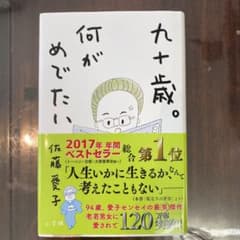 九十歳。
何が
めでたい
佐藤愛子
2017年 年間
ベストセラー
総合第1位
「人生いかに生きるか、なんて
考えたこともない」
94歳、愛子センセイの
老若男女に
愛されて
120万部
小学館